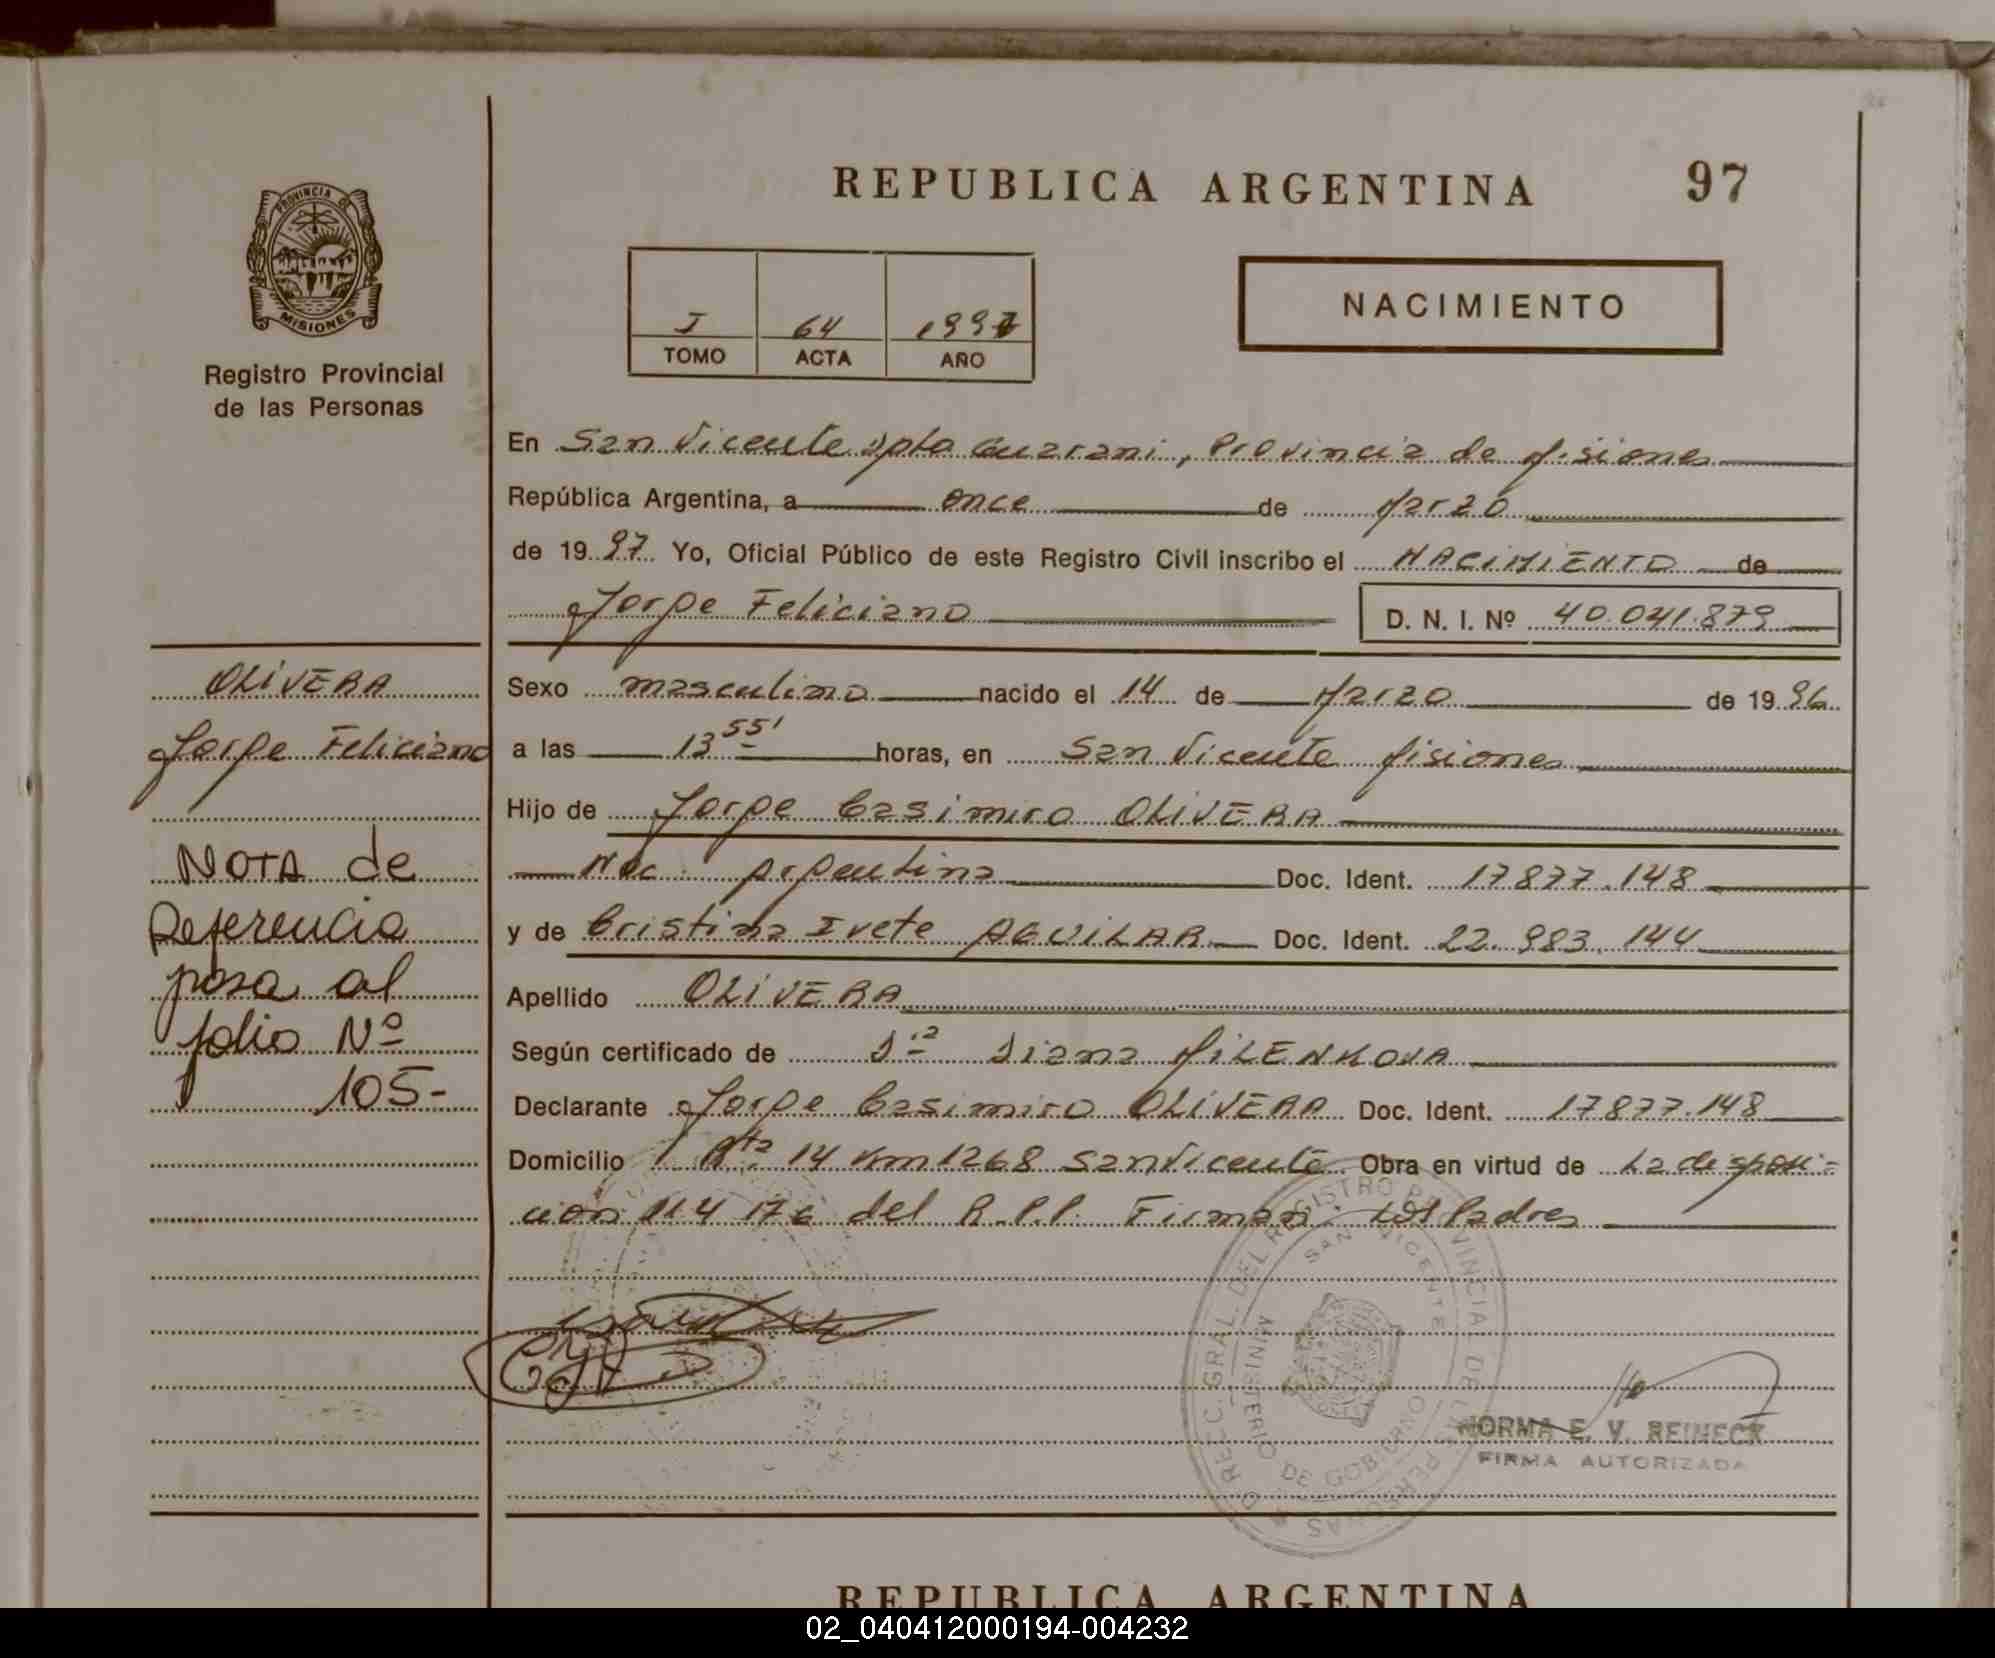 REPUBLICA ARGENTINA 97
PROVINCIA DE
MISIONES
Registro Provincial
de las Personas
I 64 1997
TOMO ACTA AÑO
NACIMIENTO
En San Vicente Dpto Guarani, Provincia de Misiones
República Argentina, a once de Marzo
de 1997 Yo, Oficial Público de este Registro Civil inscribo el NACIMIENTO de
Jorge Feliciano D. N. I. Nº 40.041.879
OLIVERA
Jorge Feliciano
NOTA de
Referencia
pasa al
folio Nº
105-
Sexo masculino nacido el 14 de Marzo de 1996
a las 13 55' horas, en San Vicente Misiones
Hijo de Jorge Casimiro OLIVERA
Nac. Argentina Doc. Ident. 17877.148
y de Cristina Ivete AGUILAR Doc. Ident. 22.983.144
Apellido OLIVERA
Según certificado de Dra Diana MILENKOVA
Declarante Jorge Casimiro OLIVERA Doc. Ident. 17877.148
Domicilio Rta 14 Km 1268 San Vicente Obra en virtud de La disposi=
ción Nº 176 del R.P.P. Firman: los Padres
DIREC. GRAL. DEL REGISTRO PROVINCIAL DE LAS PERSONAS
SAN VICENTE
MINISTERIO DE GOBIERNO
NORMA E. V. REINECK
FIRMA AUTORIZADA
REPUBLICA ARGENTINA
02_040412000194-004232